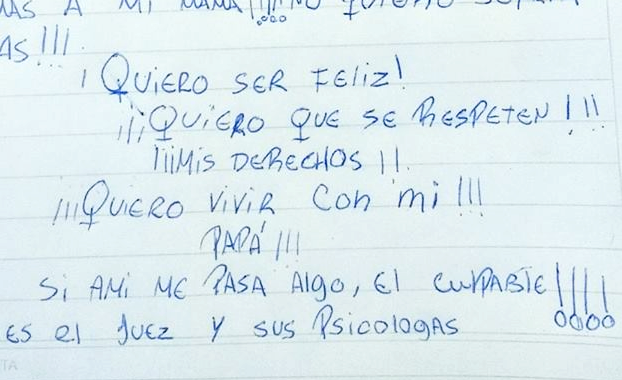 MAS A MI MAMÁ!!!! NO QUIERO
AS!!!
¡QUIERO SER FELIZ!
¡¡¡QUIERO QUE SE RESPETEN!!!
¡¡¡MIS DERECHOS!!.
¡¡¡QUIERO VIVIR Con mi!!!
PAPÁ!!!
Si AMi ME PASA Algo, El CulPABlE!!!!
ES el JUEZ Y SUS Psicologas
TA